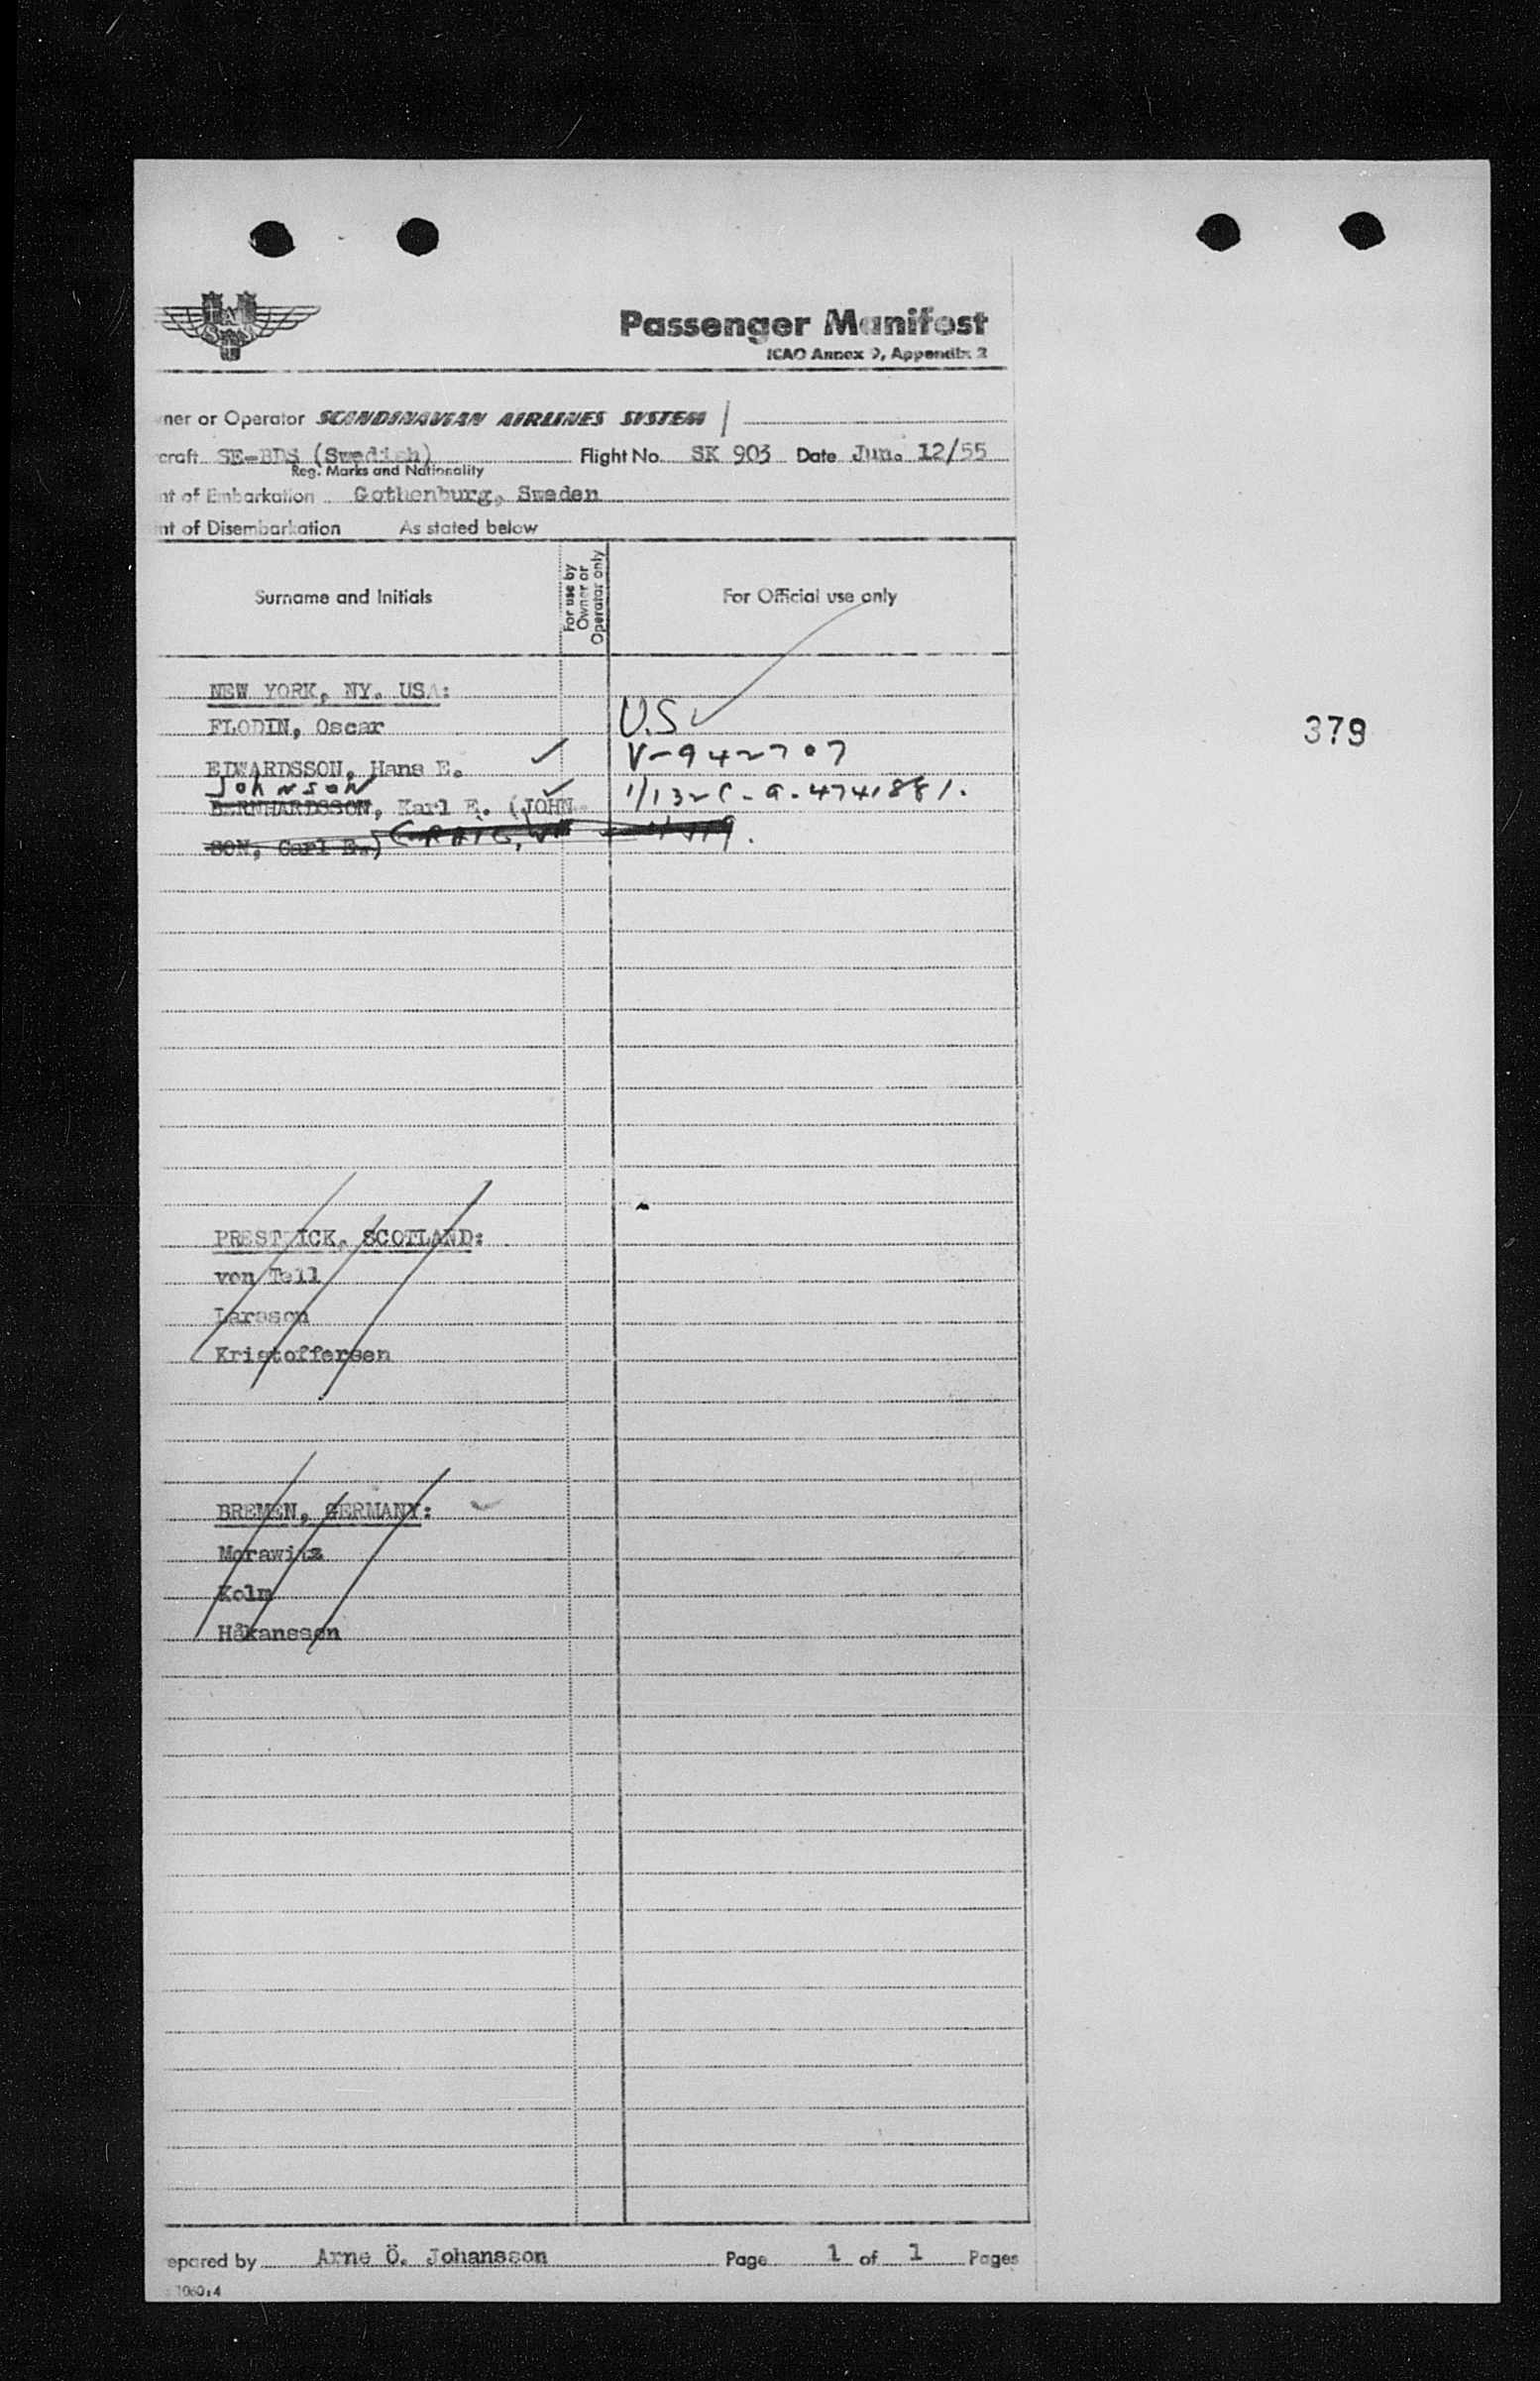 Passenger Manifest
ICAO Annex 9, Appendix 2
ner or Operator SCANDINAVIAN AIRLINES SYSTEM
craft SE-BDS (Swedish) Flight No. SK 903 Date Jun. 12/55
Reg. Marks and Nationality
nt of Embarkation Gothenburg, Sweden
int of Disembarkation As stated below
Surname and Initials For use by Owner or Operator only For Official use only
NEW YORK, NY. USA:
FLODIN, Oscar U.S
379
EDWARDSSON, Hans E. V-942707
JOHNSON
BERNHARDSSON, Karl E. (JOHN- 4741881.
SON, Carl E.) CRAIG, Wm
PRESTWICK, SCOTLAND:
von Tell
Larsson
Kristoffersen
BREMEN, GERMANY:
Morawitz
Kolm
Håkansson
epared by Arne Ö. Johansson Page 1 of 1 Pages
1060:4